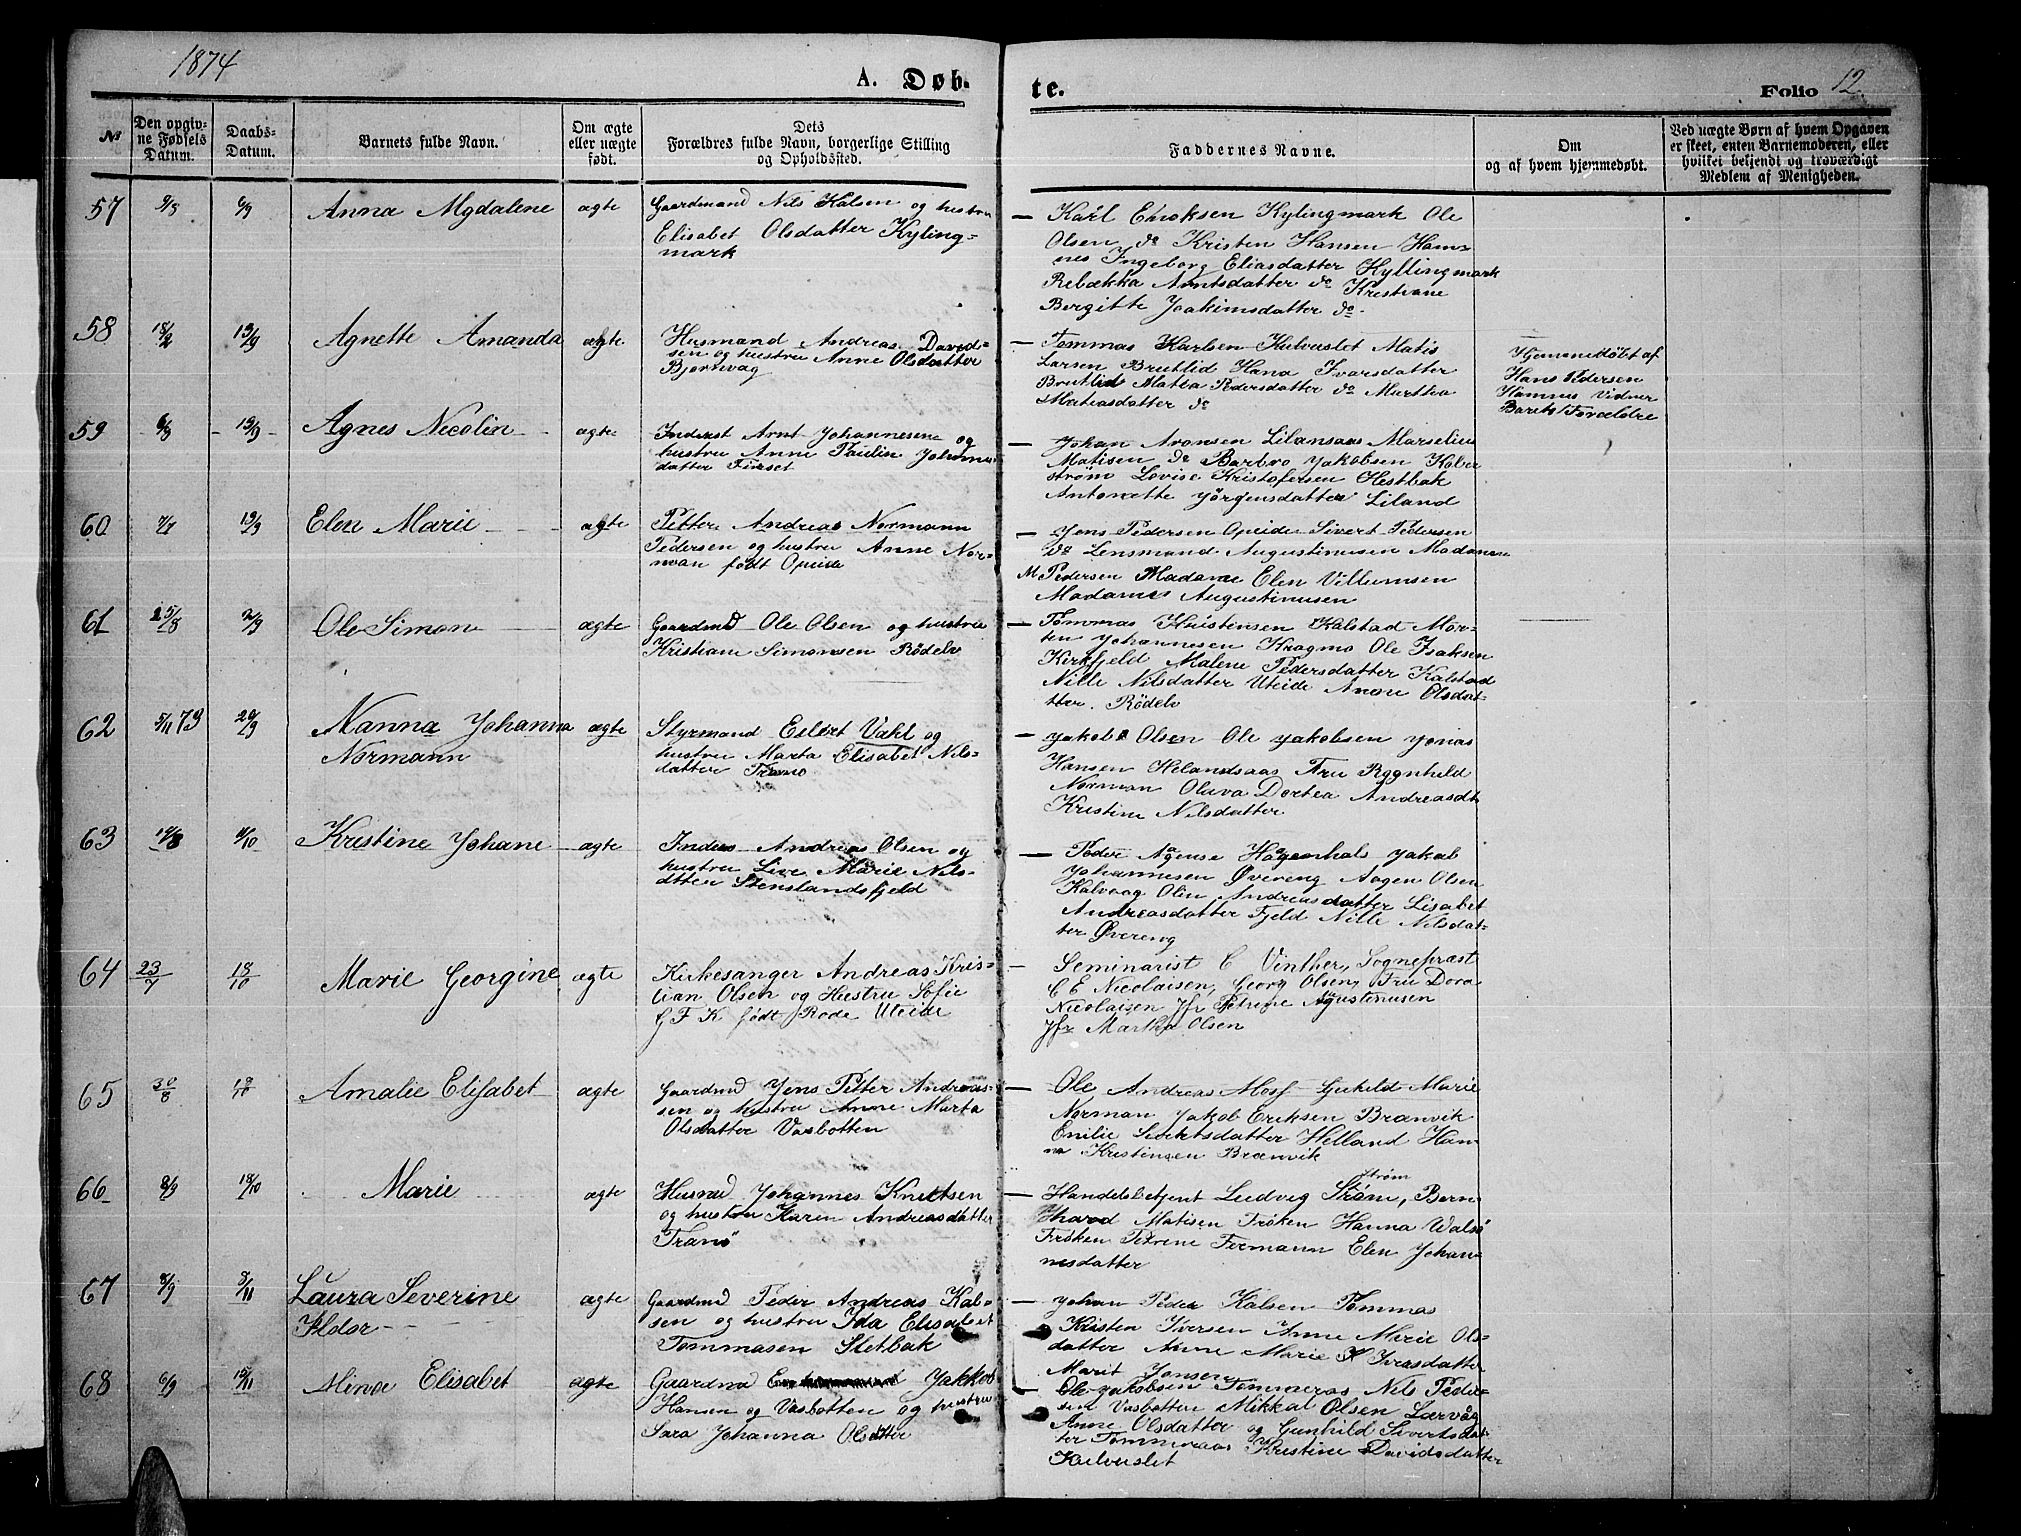 1874
A. Døb-
te.
Folio 12.
№
Den opgiv-
ne Fødsels
Datum.
Daabs-
Datum.
Barnets fulde Navn.
Om ægte
eller uægte
født.
Dets
Forældres fulde Navn, borgerlige Stilling
og Opholdssted.
Faddernes Navne.
Om
og af hvem hjemmedøbt.
Ved uægte Børn af hvem Opgaven
er skeet, enten Barnemoderen, eller
hvilket bekjendt og troværdigt
Medlem af Menigheden.
57 6/9 Anna Mgdalene agte
Gaardmand Nils Kalsen og hustru
Elisabet Olsdatter Kyling-
mark
Karl Enoksen Kylingmark Ole
Olsen do Kristen Hansen Ham-
nes Ingeborg Eliasdatter Kyllingmark
Rebækka Arntsdatter do Kristiane
Bergitte Joakimsdatter do
58 18/2 13/9 Agnette Amanda agte
Husmand Andreas David-
sen og hustru Anne Olsdatter
Bjortevag
Tommas Karlsen Kulvuslet Matis
Larsen Brutlid Hana Ivarsdatter
Brutlid Matea Pedersdatter do Martha
Matiasdatter do
Hjemmedøbt af
Hans Pedersen
Hamnes Vidner
Barets Forældre
59 13/9 Agnes Nicolin agte
Inderst Arnt Johannesen og
hustru Anne Paulin Johanne
datter Finset
Johan Aronsen Lilansaas Marselius
Matisen do Barbro Jakobsen Kaber
strøm Lovise Kristofersen Hestbak
Antonette Jørgensdatter Liland
60 7/7 13/9 Elen Marie agte
Petter Andreas Normann
Pedersen og hustru Anne Nor-
man født Opeide
Jens Pedersen Opeide Sivert Pedersen
do Lensmand Augustinusen Madame
M Pedersen Madame Elen Villumsen
Madames Augustinusen
61 25/8 2/9 Ole Simon agte
Gaardmd Ole Olsen og hustru
Kristiane Simonsen Rödelv
Tommas Kristensen Kalstad Mor-
ten Johannesen Kragmo Ole Isaksen
Kirkfjeld Malene Pedersdatter Kalstad
Nille Nilsdatter Uteide Anne Olsdat-
ter Rödelv
62 5/11 73 20/9 Nanna Johanna
Normann ægte
Styrmand Eilert Vahl og
hustru Marta Elisabet Nils-
datter Trano
Jakob Olsen Ole Jakobsen Jonas
Hansen Helandsaas Fru Ragnhild
Norman Oluva Dortea Andreasdt
Kristine Nilsdatter
63 11/10 Kristine Johane agte
Inders Andreas Olsen og
hustru Live Marie Nils-
dtter Stenslandsfjeld
Peder Ågense Hågenhals Jakob
Johannesen Øvereng Aagen Olsen
Kalvaag Olin Andreasdatter Lisabet
Andreasdatter Fjeld Nille Nilsdat-
ter Øvereng
64 23/7 18/10 Marie Georgine agte
Kirkesanger Andreas Kris-
tian Olsen og Hustru Sofie
G F K født Rode Uteide
Seminarist C Vinther, Sognepræst
C E Nicolaisen, Georg Olsen, Fru Dora
Nicolaisen Jfr Petrine Agustinusen
Jfr Martha Olsen
65 30/8 18/10 Amalie Elisabet agte
Gaardmd Jens Petter Andreas-
sen og hustru Anne Marta
Olsdatter Vasbotten
Ole Andreas Mosf Gjukild Marie
Norman Jakob Eriksen Brænvik
Emilie Sivertsdatter Helland Han
na Kristensen Brænvik
66 8/9 18/10 Marie agte
Husmd Johannes Knutsen
og hustru Karen Andreasdatter
Tranö
strøm
Handelsbetjent Ludvig Strøm, Bern
hard Matisen Frøken Hanna Walsö
Frøken Petrine Feemann Elen Johan-
nesdatter
67 8/9 8/11 Laura Severine
Hldor agte
Gaardmd Peder Andreas Kal-
sen og hustru Ida Elisabet
Tommasen Sletbak
Johan Peder Kalsen Tommas
Kristen Iversen Anne Marie Ols-
datter Anne Marie K Ivarsdatter
Marit Jonsen
68 6/9 15/11 Mina Elisabet agte
Gaardmd Jakkob
Hansen og Vasbotten og hustru
Sara Johanna Olsdtter
Ole Jakobsen Tommeraas Nils Peder-
sen Vasbotten Mikkal Olsen Lærvåg
Anne Olsdatter og Gunhild Sivertsdat
ter Tommeraas Kristine Davidsdatter
Kulvuslet